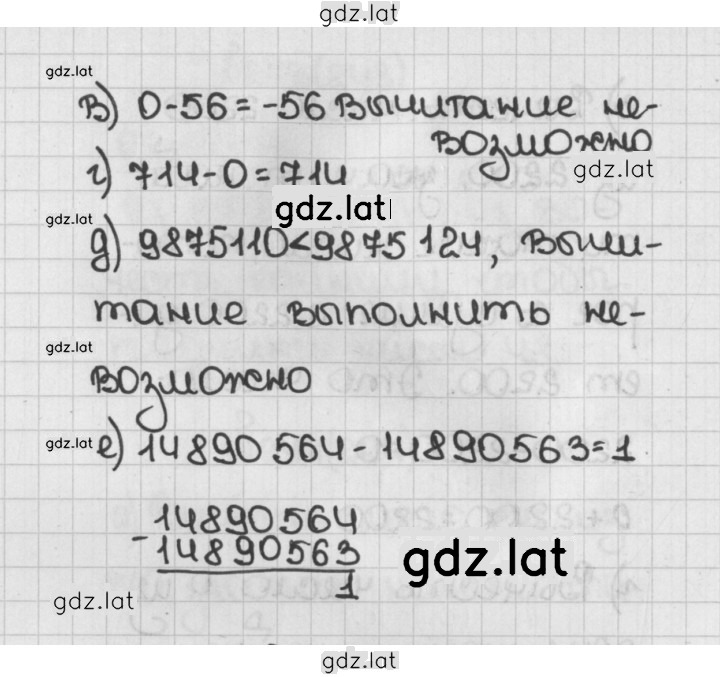 gdz.lat
gdz.lat
в) 0-56=-56 Вычитание не-
возможно
gdz.lat
г) 714-0=714
gdz.lat
gdz.lat
д) 9875110<9875124, вычи-
тание выполнить не-
gdz.lat
возможно
gdz.lat
е) 14890564-14890563=1
14890564
- 14890563
1
gdz.lat
gdz.lat
gdz.lat